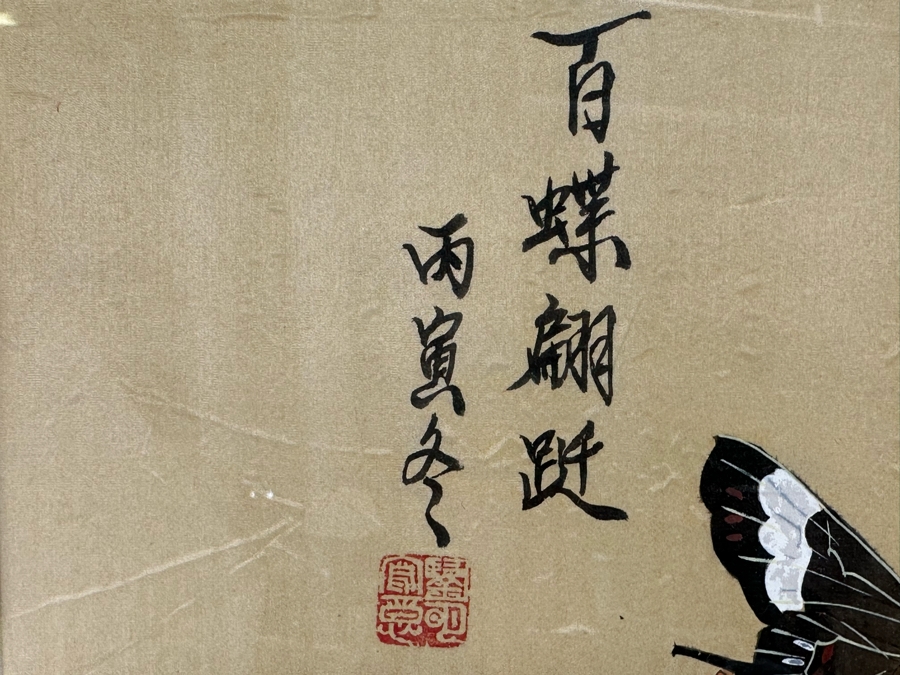 百蝶翩跹
丙寅冬